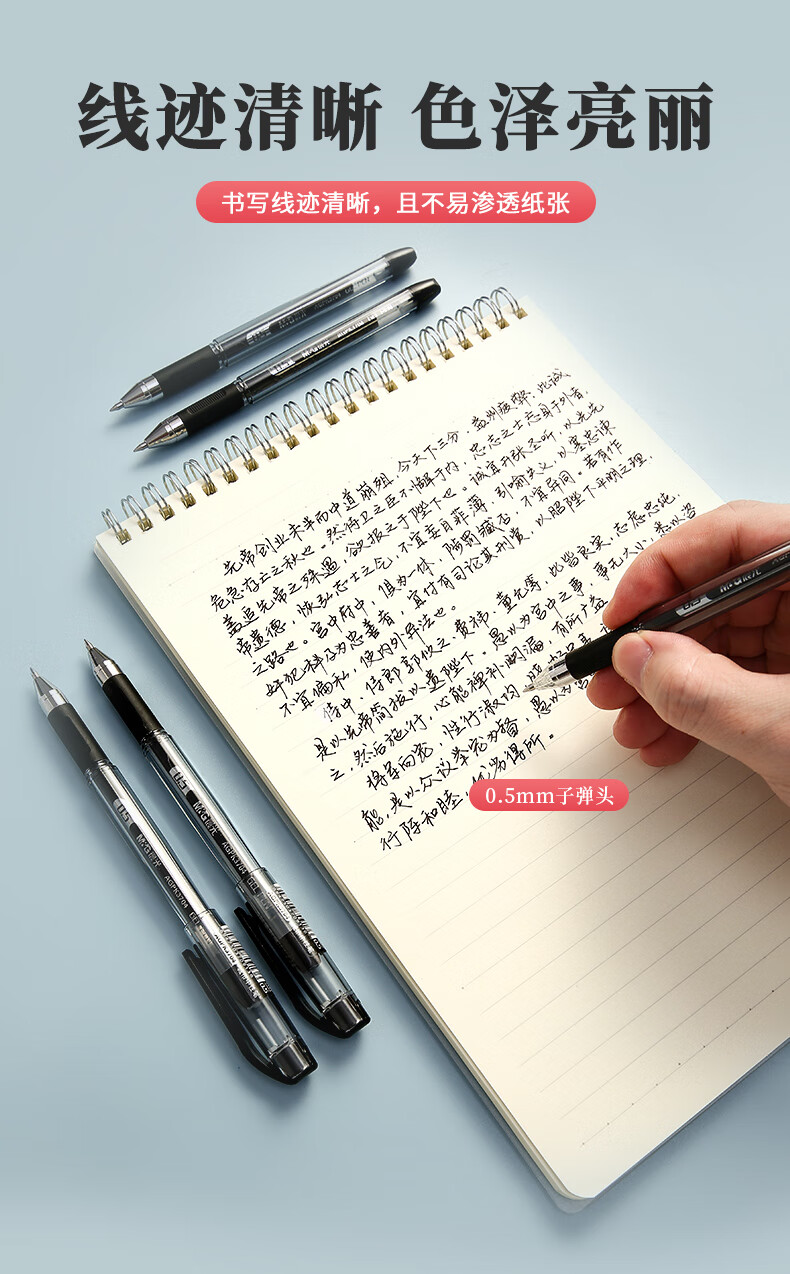 线迹清晰 色泽亮丽
书写线迹清晰，且不易渗透纸张
先帝创业未半而中道崩殂，今天下三分，益州疲弊，此诚
危急存亡之秋也。然侍卫之臣不懈于内，忠志之士忘身于外者，
盖追先帝之殊遇，欲报之于陛下也。诚宜开张圣听，以光先
帝遗德，恢弘志士之气，不宜妄自菲薄，引喻失义，以塞忠谏
之路也。宫中府中，俱为一体，陟罚臧否，不宜异同。若有作
奸犯科及为忠善者，宜付有司论其刑赏，以昭陛下平明之理，
不宜偏私，使内外异法也。
侍中、侍郎郭攸之、费祎、董允等，此皆良实，志虑忠纯，
是以先帝简拔以遗陛下。愚以为宫中之事，事无大小，悉以咨
之，然后施行，必能裨补阙漏，有所广益
将军向宠，性行淑均，
能，是以众议举宠为督，愚以为
行阵和睦，优劣得所。
0.5mm子弹头
0.5 M&G晨光
0.5 M&G晨光 AGPK3704
M&G晨光 AGPK3704